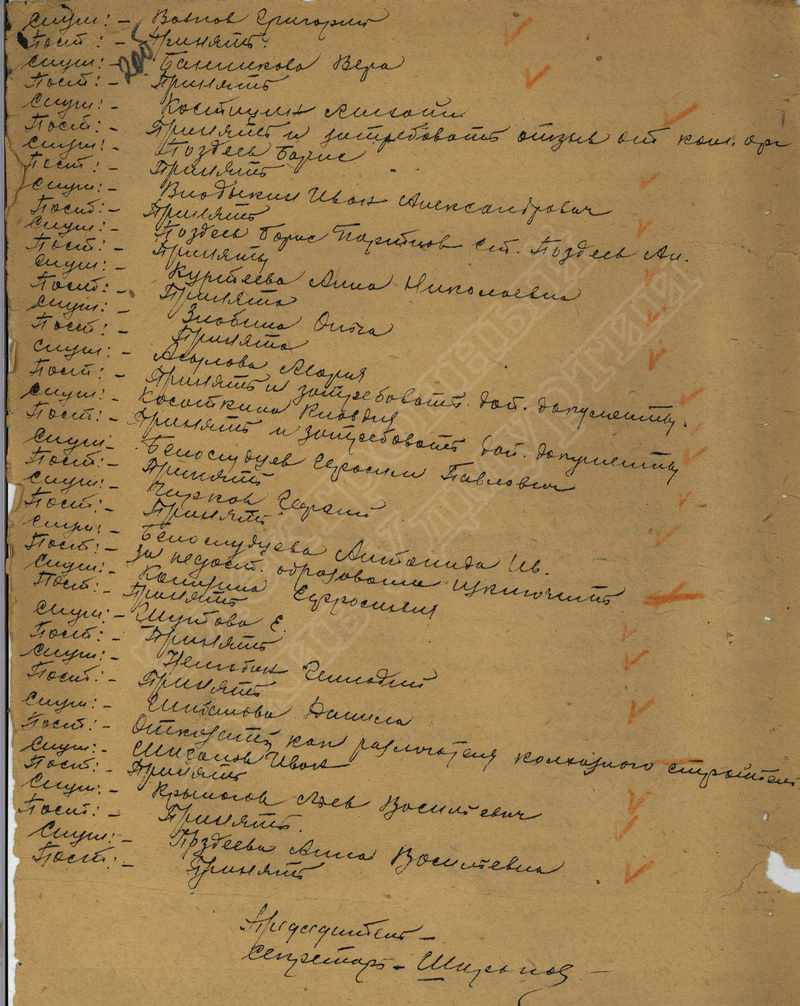 Слуш: - Вовпов Григорий
Пост: - Принять.
Слуш: - Банникова Вера
Пост: - Принять
Слуш: - Костицин Михаил
Пост: - Принять и затребовать отзыв от ком. орг
Слуш: - Поздеев Борис
Пост: - Принять
Слуш: - Владыкин Иван Александрович
Пост: - Принять
Слуш: - Поздеев Борис ст. Поздеев Ан.
Пост: - Принять
Слуш: - Куртеева Анна Николаевна
Пост: - Принята
Слуш: - Злобина Ольга
Пост: - Принята
Слуш: - Асулова Мария
Пост: - Принять и затребовать доп. документы.
Слуш: - Косоткина Клавдия
Пост: - Принять и затребовать доп. документы
Слуш - Белослудцев Герасим Павлович
Пост: - Принять
Слуш: - Чирков Гераний
Пост: - Принять
Слуш: - Белослудцева Антонида Ив.
Пост: - За недост. образование исключить
Слуш: - Ефросиния
Пост: - Принять
Слуш: - Шутова Е.
Пост: - Принять
Слуш: - Нелюбин Геннадий
Пост: - Принять
Слуш: - Шибанова Данила
Пост: - Отказать как разлагателя колхозного строител
Слуш: - Шиганов Иван
Пост: - Принять
Слуш: - Крылосов Лев Васильевич
Пост: - Принять.
Слуш: - Поздеева Анна Васильевна
Пост: - Принять
Председатель -
Секретарь - Широков